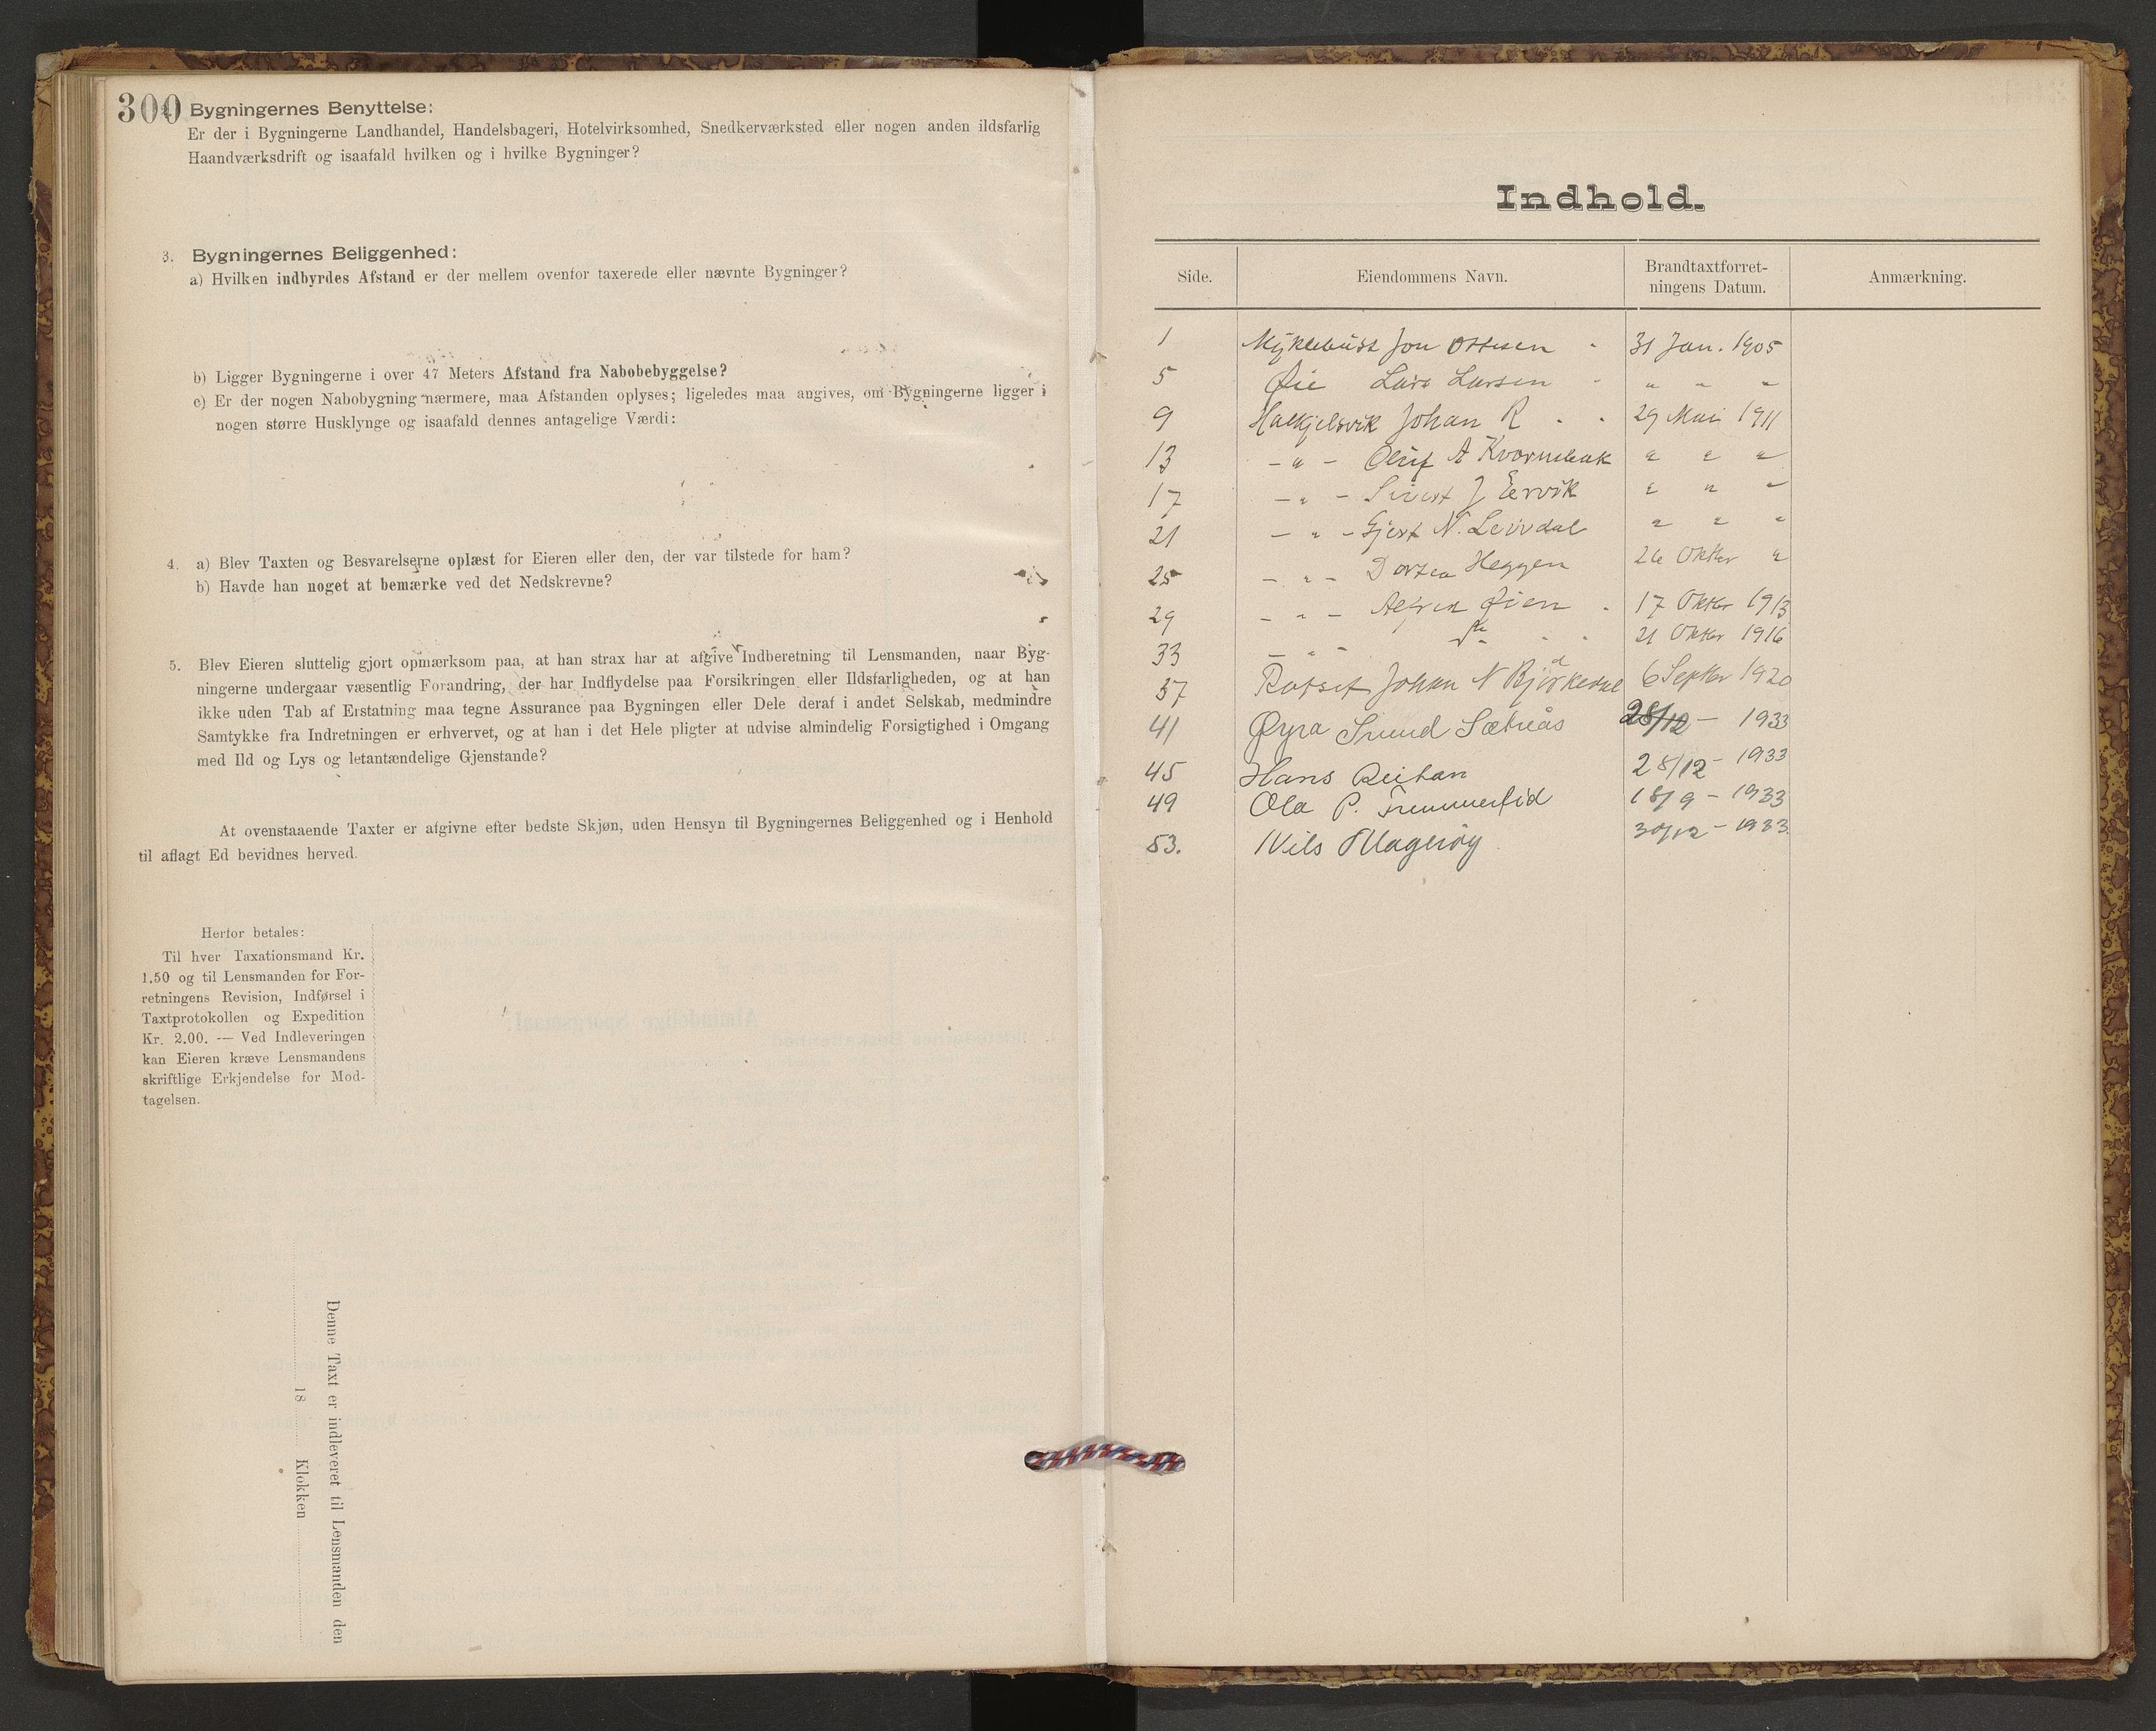 300 Bygningernes Benyttelse:
Er der i Bygningerne Landhandel, Handelsbageri, Hotelvirksomhed, Snedkerværksted eller nogen anden ildsfarlig
Haandværksdrift og isaafald hvilken og i hvilke Bygninger?
3. Bygningernes Beliggenhed:
a) Hvilken indbyrdes Afstand er der mellem ovenfor taxerede eller nævnte Bygninger?
b) Ligger Bygningerne i over 47 Meters Afstand fra Nabobebyggelse?
c) Er der nogen Nabobygning nærmere, maa Afstanden oplyses; ligeledes maa angives, om Bygningerne ligger i
nogen større Husklynge og isaafald dennes antagelige Værdi:
4. a) Blev Taxten og Besvarelserne oplæst for Eieren eller den, der var tilstede for ham?
b) Havde han noget at bemærke ved det Nedskrevne?
5. Blev Eieren sluttelig gjort opmærksom paa, at han strax har at afgive Indberetning til Lensmanden, naar Byg-
ningerne undergaar væsentlig Forandring, der har Indflydelse paa Forsikringen eller Ildsfarligheden, og at han
ikke uden Tab af Erstatning maa tegne Assurance paa Bygningen eller Dele deraf i andet Selskab, medmindre
Samtykke fra Indretningen er erhvervet, og at han i det Hele pligter at udvise almindelig Forsigtighed i Omgang
med Ild og Lys og letantændelige Gjenstande?
At ovenstaaende Taxter er afgivne efter bedste Skjøn, uden Hensyn til Bygningernes Beliggenhed og i Henhold
til aflagt Ed bevidnes herved.
Herfor betales:
Til hver Taxationsmand Kr.
1.50 og til Lensmanden for For-
retningens Revision, Indførsel i
Taxtprotokollen og Expedition
Kr. 2.00. — Ved Indleveringen
kan Eieren kræve Lensmandens
skriftlige Erkjendelse for Mod-
tagelsen.
Denne Taxt er indleveret til Lensmanden den
18 Klokken
Indhold.
Side. Eiendommens Navn. Brandtaxtforret-
ningens Datum. Anmærkning.
1 Myklebust Jon Ottesen 31 Jan. 1905
5 Øie Lars Larsen " " "
9 Halkjelsvik Johan R 29 Mai 1911
13 - " - Oluf A Kvarnebak " " "
17 - " - Sivert J Ervik " " "
21 - " - Gjert N. Leivdal " " "
25 - " - Dortea Heggen 26 Oktbr "
29 - " - Alfred Øien 17 Oktbr 1913
33 - " - 21 Oktbr 1916
37 Rotset Johan N Björkedal 6 Septbr 1920
41 Øyra Sætnås 28/12 - 1933
45 Hans Reitan 28/12 - 1933
49 Ola P. 18/9 - 1933
53. Nils Magerøy 30/12 - 1933